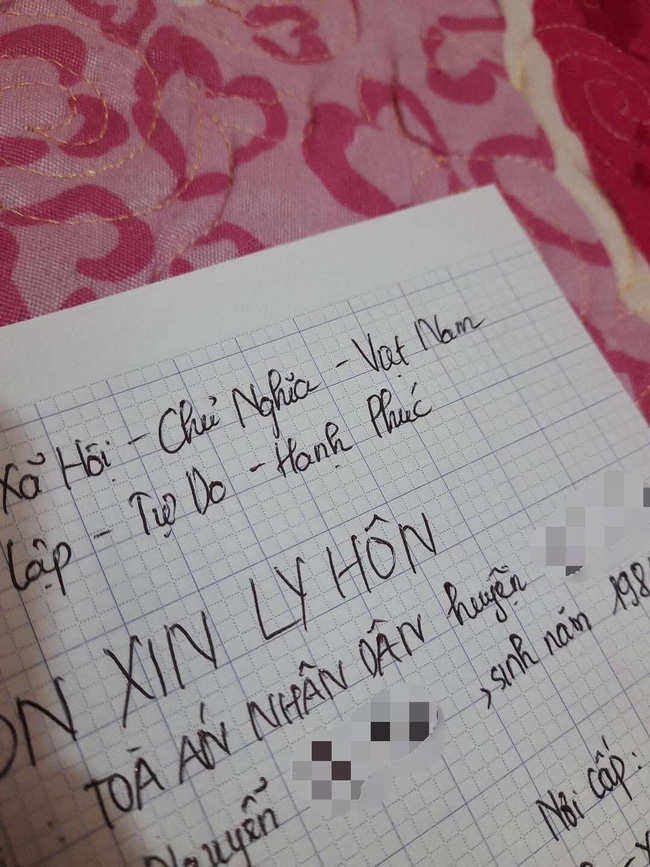 Xã Hội - Chủ Nghĩa - Việt Nam
Lập - Tự Do - Hạnh Phúc
ƠN XIN LY HÔN
TOÀ ÁN NHÂN DÂN huyện
Nguyễn , sinh năm 198
Nơi cấp: